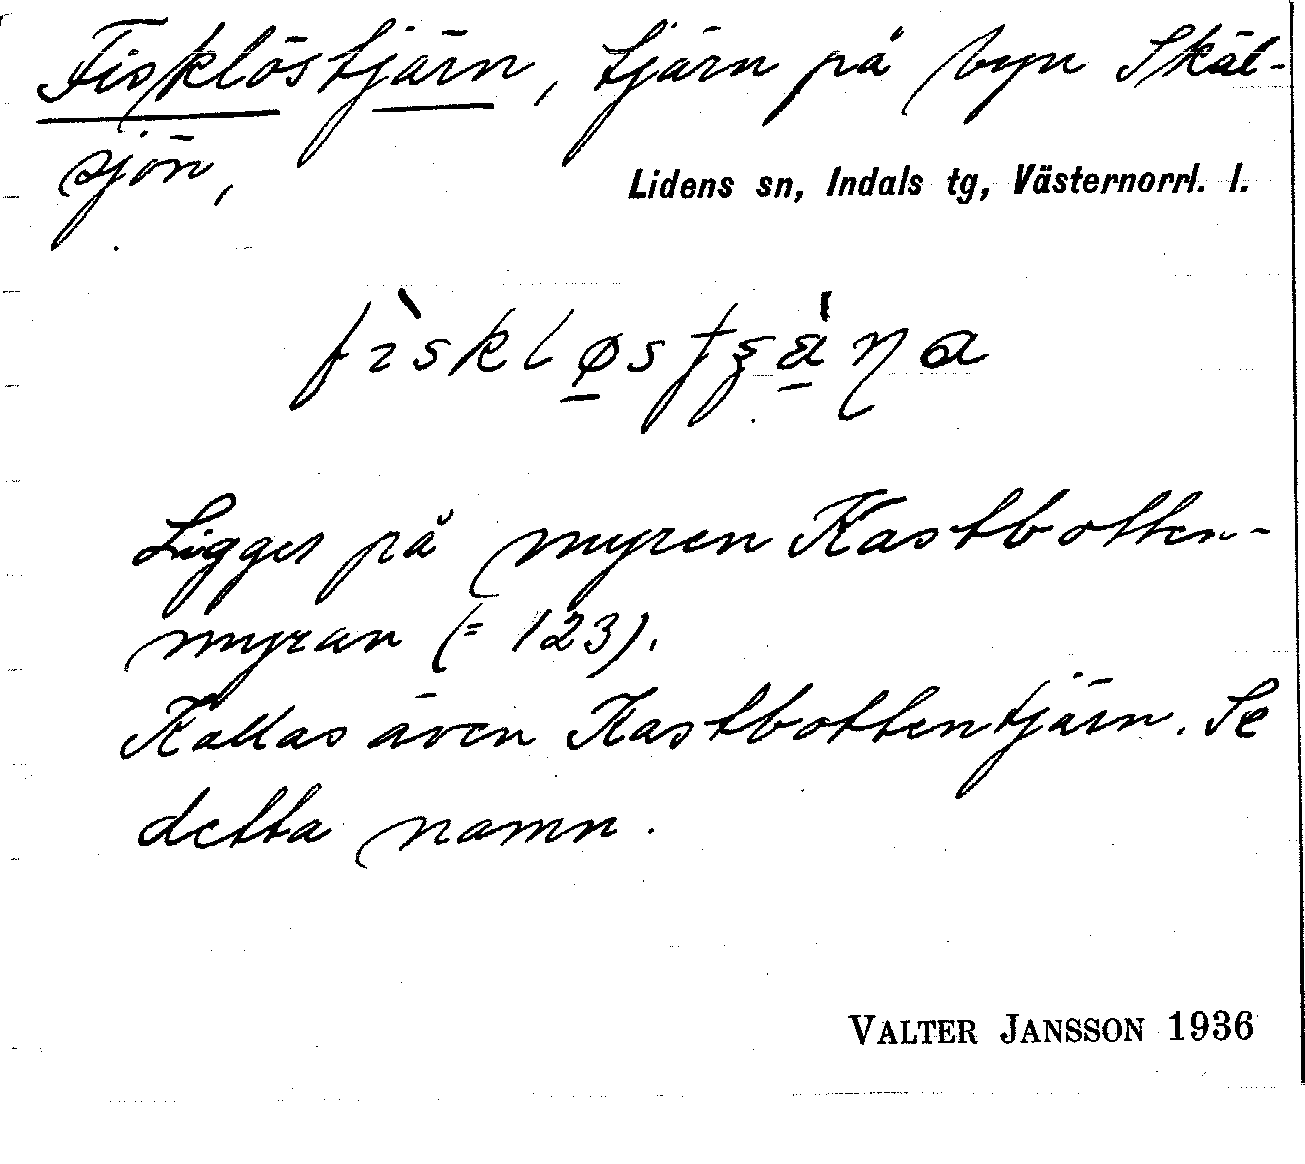 Fisklöstjärn, tjärn på byn Skäl-
sjön,
Lidens sn, Indals tg, Västernorrl. l.
Ligger på myren Kastbotten-
myran (= 123).
Kallas även Kastbottentjärn. Se
detta namn.
VALTER JANSSON 1936